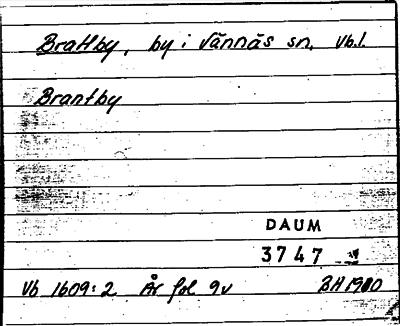 Brattby, by i Vännäs sn. Vb.l.
Brantby
DAUM
3747
Vb 1609:2 År fol 9v BH 1980